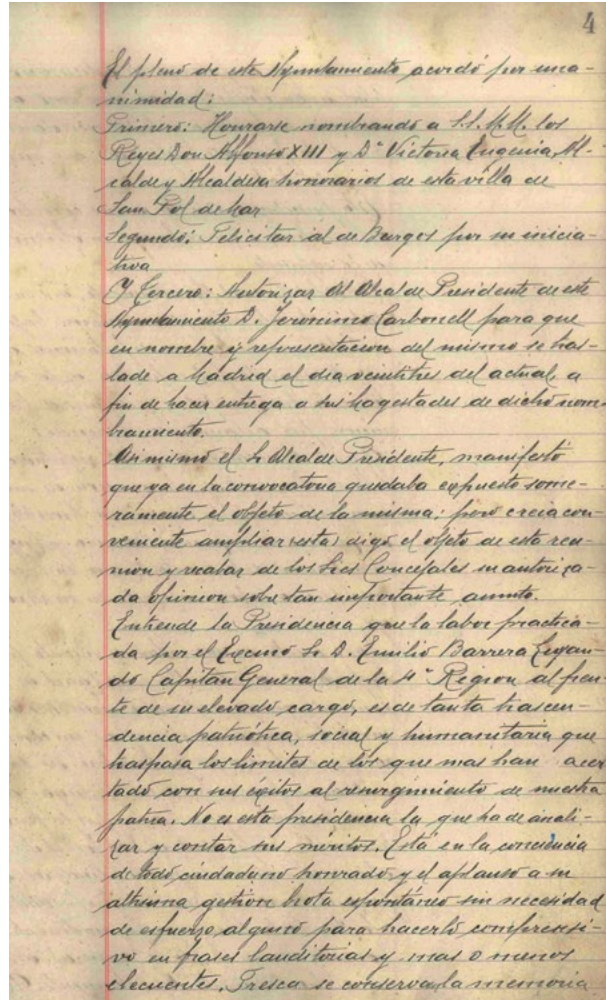 4
El pleno de este Ayuntamiento acordó por una-
nimidad:
Primero: Honrarse nombrando a S.S. M.M. los
Reyes Don Alfonso XIII y Dª Victoria Eugenia, Al-
calde y Alcaldesa honorarios de esta villa de
San Pol de Mar
Segundo: Felicitar al de Burgos por su inicia-
tiva
Y tercero: Autorizar al Alcalde Presidente de este
Ayuntamiento D. Jerónimo Carbonell para que
en nombre y representacion del mismo se tras-
lade a Madrid el dia veintitres del actual, a
fin de hacer entrega a sus Magestades de dicho nom-
bramiento.
Asi mismo el Sr Alcalde Presidente, manifestó
que ya en la convocatoria quedaba expuesto some-
ramente el objeto de la misma; pero creia con-
veniente ampliar esta, digo el objeto de esta reu-
nion y recabar de los Sres Concejales su autoriza-
da opinion sobre tan importante asunto.
Entiende la Presidencia que la labor practica-
da por el Excmo Sr D. Emilio Barrera Luyan-
do Capitan General de la 4ª Region al fren-
te de su elevado cargo, es de tanta trascen-
dencia patriótica, social y humanitaria que
traspasa los limites de los que mas han acer
tado con sus éxitos al resurgimiento de nuestra
patria. No es esta presidencia la que ha de anali-
zar y contar sus méritos. Está en la conciencia
de todo ciudadano honrado y el aplauso a su
altisima gestion brota espontáneo sin necesidad
de esfuerzo alguno para hacerlo compresi-
vo en frases lauditorias y mas o menos
elecuentes. Fresca se conserva la memoria